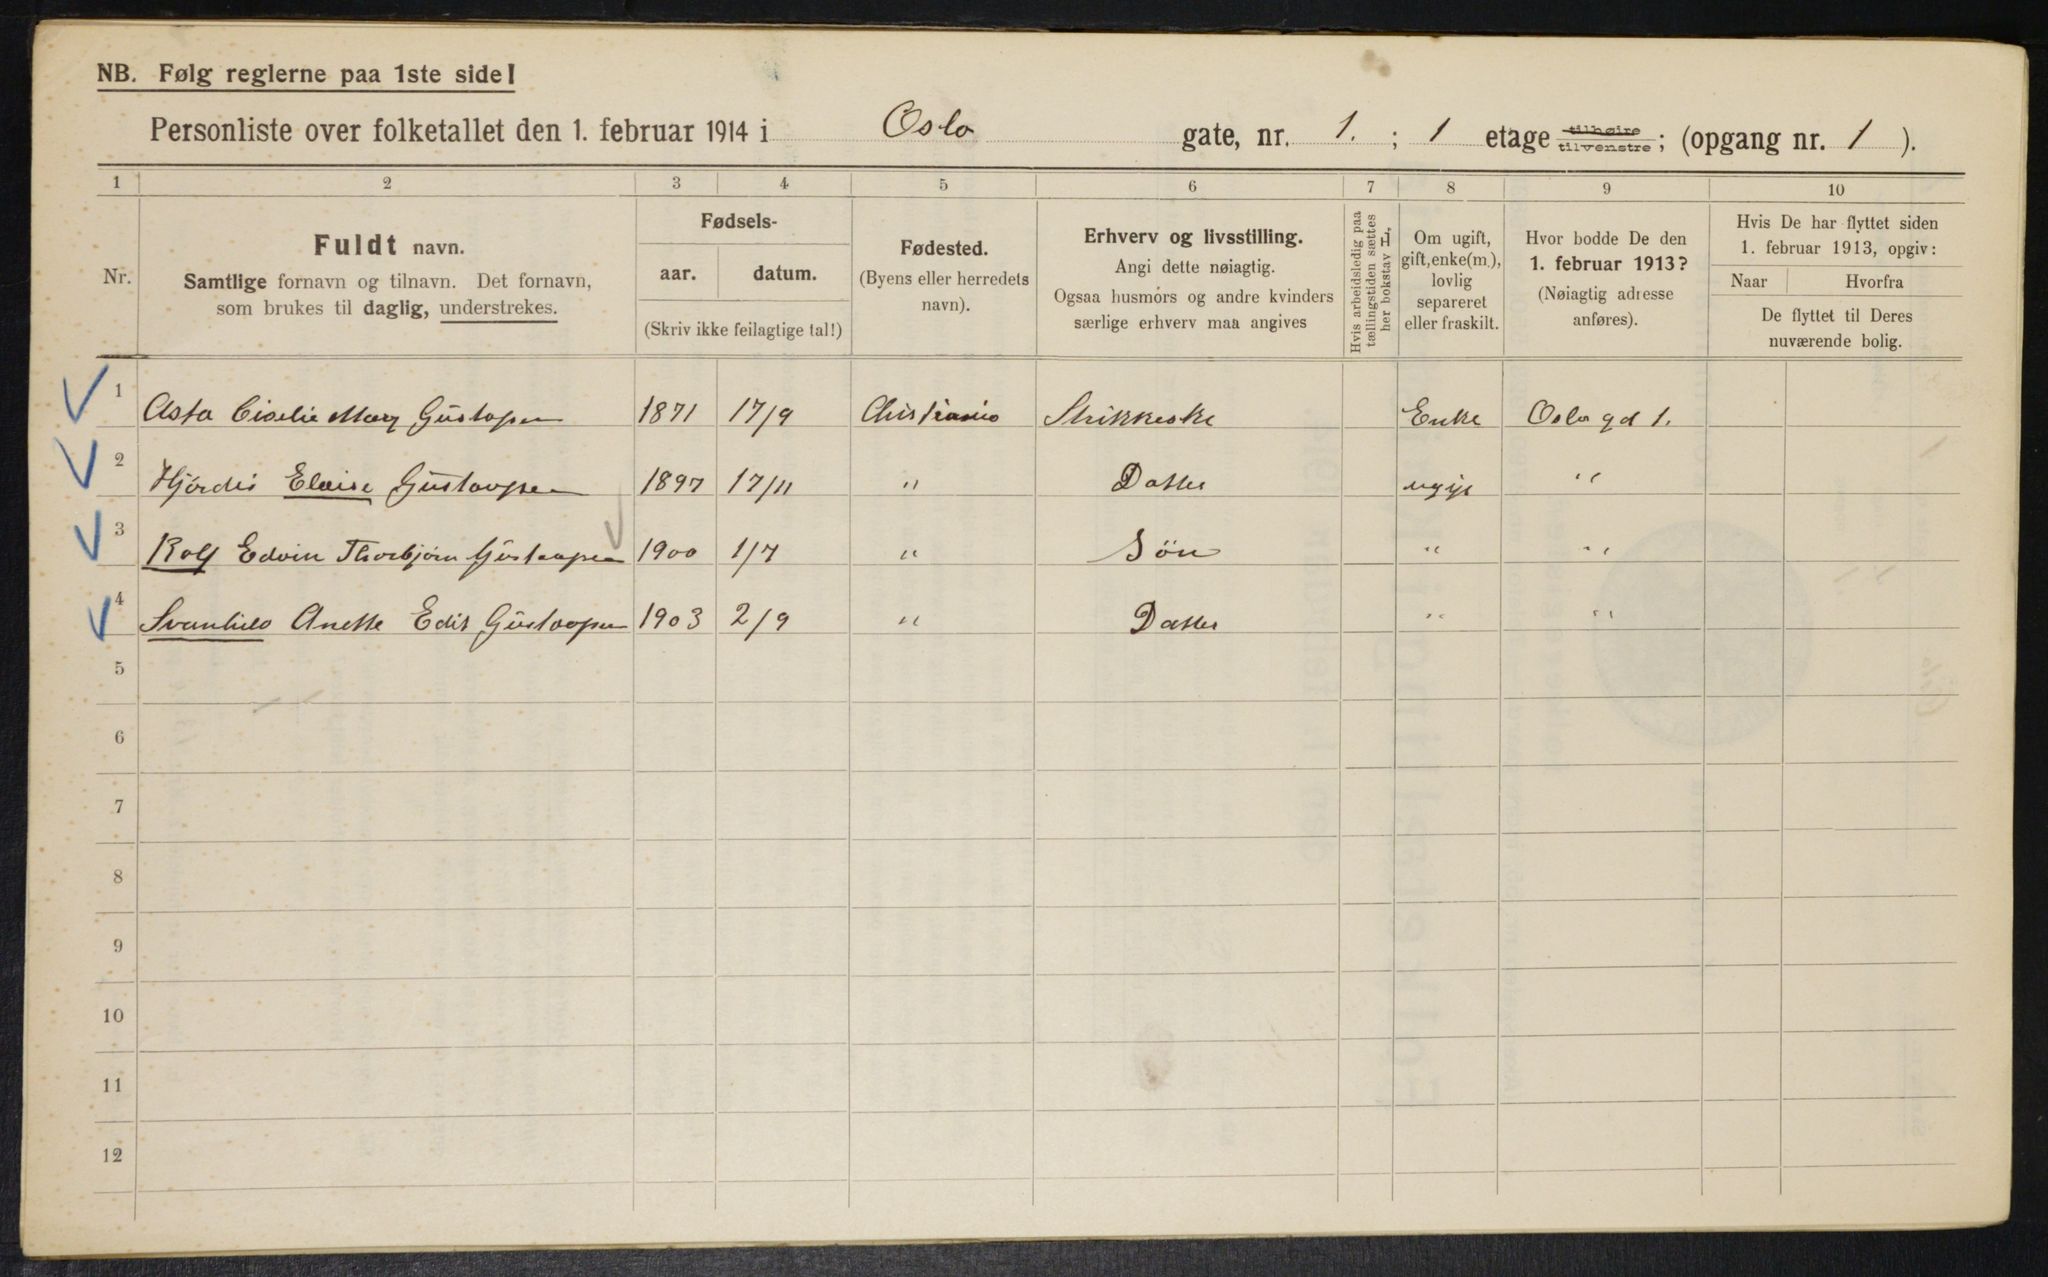 NB. Følg reglerne paa 1ste side!
Personliste over folketallet den 1. februar 1914 i Oslo gate, nr. 1. ; 1 etage tilhøire tilvenstre ; (opgang nr. 1 ).
1 2 3 4 5 6 7 8 9 10
Nr.
Fuldt navn.
Samtlige fornavn og tilnavn. Det fornavn,
som brukes til daglig, understrekes.
Fødsels-
aar. datum.
(Skriv ikke feilagtige tal!)
Fødested.
(Byens eller herredets
navn).
Erhverv og livsstilling.
Angi dette nøiagtig.
Ogsaa husmors og andre kvinders
særlige erhverv maa angives
Hvis arbeidsledig paa
tællingstiden sættes
her bokstav L,
Om ugift,
gift, enke(m.),
lovlig
separeret
eller fraskilt.
Hvor bodde De den
1. februar 1913?
(Nøiagtig adresse
anføres).
Hvis De har flyttet siden
1. februar 1913, opgiv:
Naar Hvorfra
De flyttet til Deres
nuværende bolig.
1 Asta Cicelie Mary Gustavsen 1871 17/9 Christiania Enke Oslo gd 1.
2 Hjördis Elaise Gustavsen 1897 17/11 " Datter ugift "
3 Rolf Edvin Thorbjörn Gustavsen 1900 1/7 " Sön " "
4 Svanhild Anette Edit Gustavsen 1903 2/9 " Datter " "
5
6
7
8
9
10
11
12